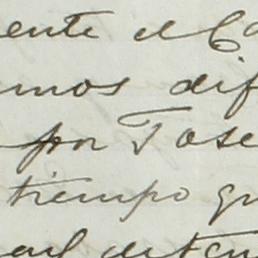 ente el Ca
mos dif
por Jose
tiempo qu